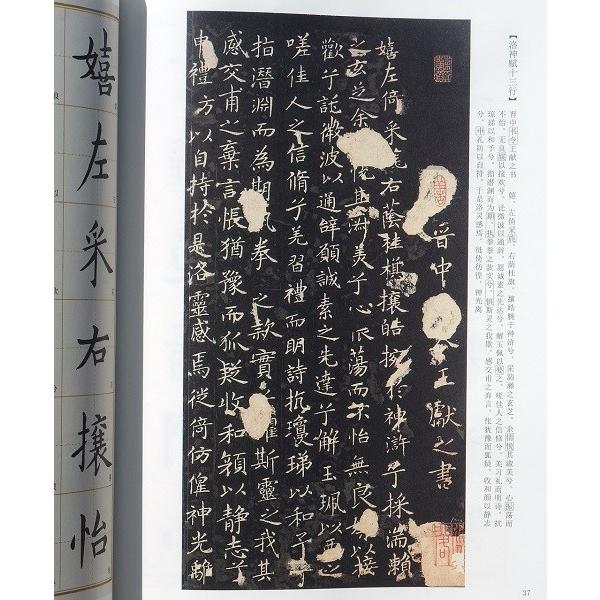 【洛神赋十三行】
晋中书令王献之书　嬉，左倚采旄，右荫桂旗，攘皓腕于神浒兮，采湍濑之玄芝，余情悦其淑美兮，心振荡而
不怡，无良媒以接欢兮，讬微波以通辞，愿诚素之先达兮，解玉佩以要之，嗟佳人之信修兮，羌习礼而明诗，抗
琼珶以和予兮，指潜渊而为期，执拳拳之款实兮，惧斯灵之我欺，感交甫之弃言，怅犹豫而狐疑，收和颜以静志
兮，申礼防以自持，于是洛灵感焉，徙倚彷徨，神光离
晉中 令王獻之書
嬉左倚采旄右蔭桂旗攘皓捥於神滸兮採湍瀨
之玄芝余 悦其淑美兮心振蕩而不怡無良 以接
歡兮託微波以通辭願誠素之先達兮解玉珮以要之
嗟佳人之信脩兮羌習禮而明詩抗瓊珶以和予兮
指潛淵而為期執拳 之款實兮懼斯靈之我其
感交甫之棄言悵猶豫而狐疑收和顔以静志兮
申禮防以自持於是洛靈感焉徙倚仿偟神光離
嬉左采右攘怡
37